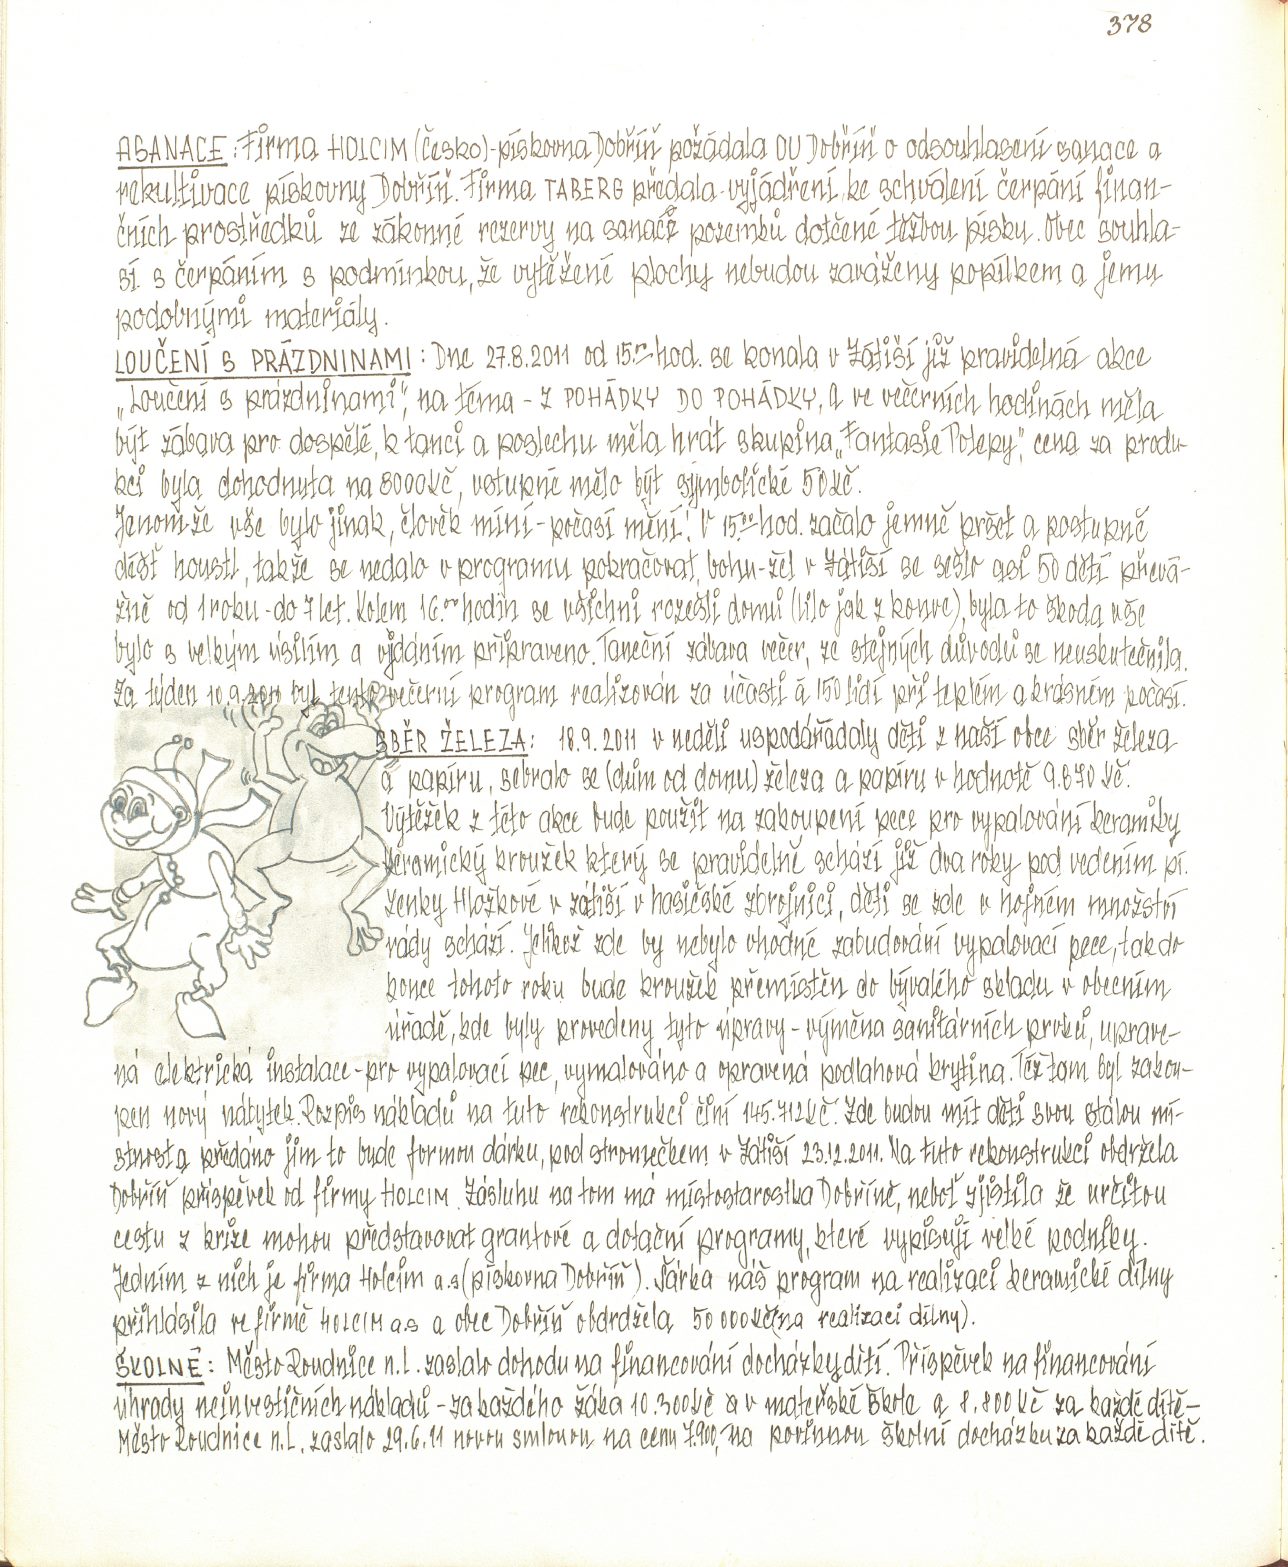 378
ASANACE: Firma HOLCIM (Česko)-pískovna Dobříň požádala OÚ Dobříň o odsouhlasení sanace a
rekultivace pískovny Dobříň. Firma TABERG předala vyjádření ke schválení čerpání finan-
čních prostředků ze zákonné rezervy na sanaci pozemků dotčené těžbou písku. Obec souhla-
sí s čerpáním s podmínkou, že vytěžené plochy nebudou zaváženy popílkem a jemu
podobnými materiály.
LOUČENÍ S PRÁZDNINAMI: Dne 27.8.2011 od 15.00 hod. se konala v Zátiší již pravidelná akce
„Loučení s prázdninami", na téma - Z POHÁDKY DO POHÁDKY, a ve večerních hodinách měla
být zábava pro dospělé, k tanci a poslechu měla hrát skupina „Fantasie Polepy", cena za produ-
kci byla dohodnuta na 8000Kč, vstupné mělo být symbolické 50Kč.
Jenomže vše bylo jinak, člověk míní - počasí mění! V 15.00 hod. začalo jemně pršet a postupně
déšť houstl, takže se nedalo v programu pokračovat, bohu-žel v Zátiší se sešlo asi 50 dětí převá-
žně od 1 roku - do 7 let. Kolem 16.00 hodin se všichni rozešli domů (lilo jak z konve), byla to škoda vše
bylo s velkým úsilím a vydáním připraveno. Taneční zábava večer, ze stejných důvodů se neuskutečnila.
Za týden 10.9.2011 byl tento večerní program realizován za účasti á 150 lidí při teplém a krásném počasí.
SBĚR ŽELEZA: 18.9.2011 v neděli uspořádaly děti z naší obce sběr železa
á papíru, sebralo se (dům od domu) železa a papíru v hodnotě 9.870 Kč.
Výtěžek z této akce bude použit na zakoupení pece pro vypalování keramiky
keramický kroužek který se pravidelně schází již dva roky pod vedením pí.
Ženky Hložkové v zátiší v hasičské zbrojnici, děti se zde v hojném množství
rády schází. Jelikož zde by nebylo vhodné zabudování vypalovací pece, tak do
konce tohoto roku bude kroužek přemístěn do bývalého skladu v obecním
úřadě, kde byly provedeny tyto úpravy - výměna sanitárních prvků, uprave-
ná elektrická instalace - pro vypalovací pec, vymalováno a opravená podlahová krytina. Též tam byl zakou-
pen nový nábytek. Rozpis nákladů na tuto rekonstrukci činí 145.712Kč. Zde budou mít děti svou stálou mí-
stnost a předáno jim to bude formou dárku, pod stromečkem v Zátiší 23.12.2011. Na tuto rekonstrukci obdržela
Dobříň příspěvek od firmy HOLCIM. Zásluhu na tom má místostarostka Dobříně, neboť zjistila že určitou
cestu z krize mohou představovat grantové a dotační programy, které vypisují velké podniky.
Jedním z nich je firma Holcim a.s (pískovna Dobříň). Šárka náš program na realizaci keramické dílny
přihlásila ve firmě HOLCIM a.s a obec Dobříň obdržela 50 000Kč (na realizaci dílny).
ŠKOLNÉ: Město Roudnice n.L. zaslalo dohodu na financování docházky dětí. Příspěvek na financování
úhrady neinvestičních nákladů - za každého žáka 10.300Kč a v mateřské škole a 8.800Kč za každé dítě -
Město Roudnice n.L. zaslalo 29.6.11 novou smlouvu na cenu 7.900,- na povinnou školní docházku za každé dítě.